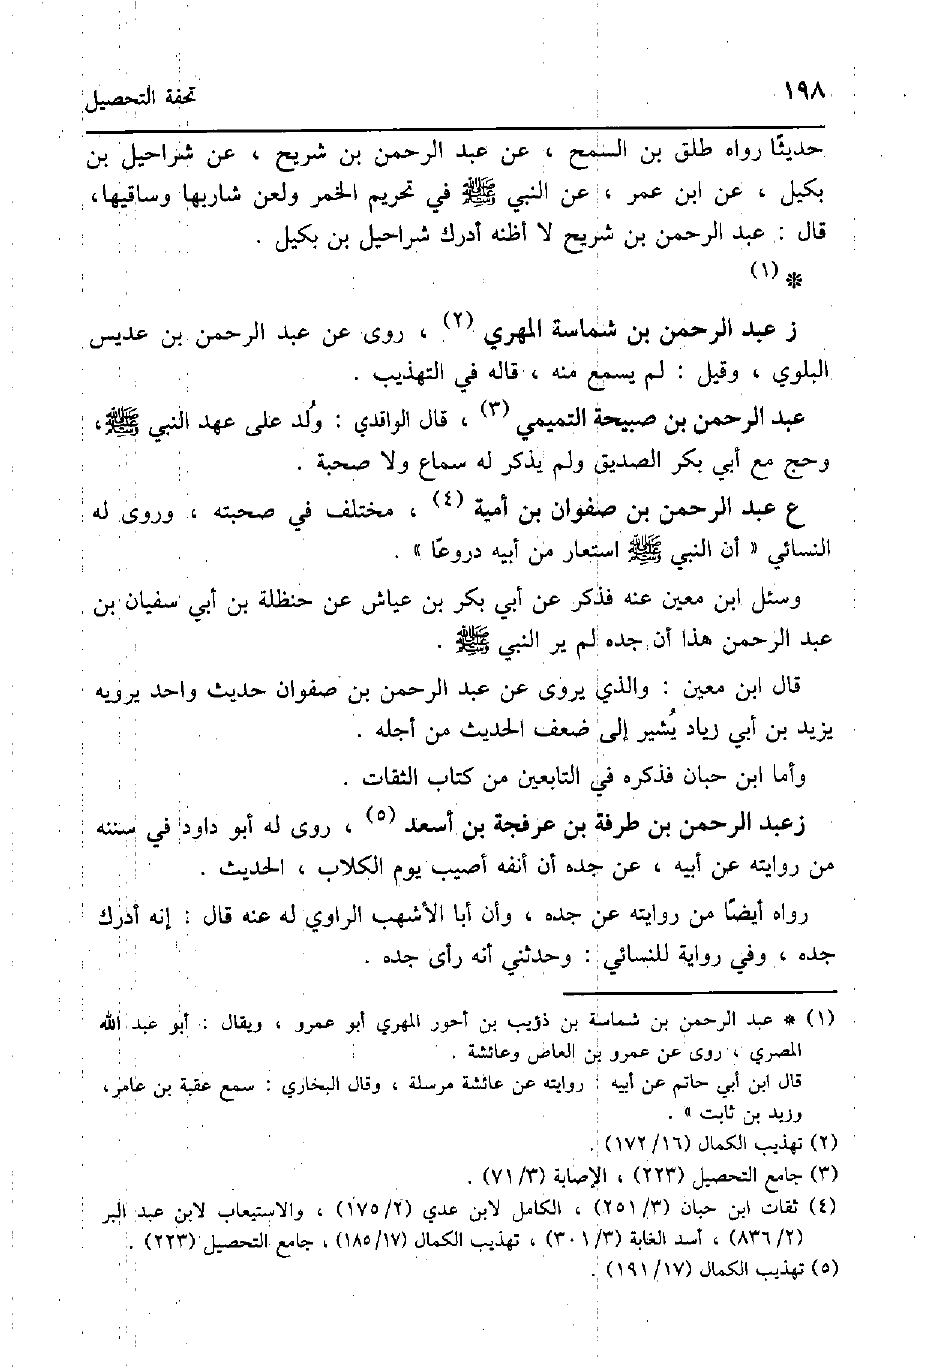 ١٩٨
تحفة التحصيل
حديثًا رواه طلق بن السمح ، عن عبد الرحمن بن شريح ، عن شراحيل بن
بكيل ، عن ابن عمر ، عن النبي ﷺ في تحريم الخمر ولعن شاربها وساقيها،
قال : عبد الرحمن بن شريح لا أظنه أدرك شراحيل بن بكيل .
* (١)
ز عبد الرحمن بن شماسة المهري (٢) ، روى عن عبد الرحمن بن عديس
البلوي ، وقيل : لم يسمع منه ، قاله في التهذيب .
عبد الرحمن بن صبيحة التميمي (٣) ، قال الواقدي : وُلد على عهد النبي ﷺ،
وحج مع أبي بكر الصديق ولم يذكر له سماع ولا صحبة .
ع عبد الرحمن بن صفوان بن أمية (٤) ، مختلف في صحبته ، وروى له
النسائي « أن النبي ﷺ استعار من أبيه دروعًا » .
وسئل ابن معين عنه فذكر عن أبي بكر بن عياش عن حنظلة بن أبي سفيان بن
عبد الرحمن هذا أن جده لم ير النبي ﷺ .
قال ابن معين : والذي يروى عن عبد الرحمن بن صفوان حديث واحد يرويه
يزيد بن أبي زياد يُشير إلى ضعف الحديث من أجله .
وأما ابن حبان فذكره في التابعين من كتاب الثقات .
زعبد الرحمن بن طرفة بن عرفجة بن أسعد (٥) ، روى له أبو داود في سننه
من روايته عن أبيه ، عن جده أن أنفه أصيب يوم الكلاب ، الحديث .
رواه أيضًا من روايته عن جده ، وأن أبا الأشهب الراوي له عنه قال : إنه أدرك
جده ، وفي رواية للنسائي : وحدثني أنه رأى جده .
(١) * عبد الرحمن بن شماسة بن ذؤيب بن أحور المهري أبو عمرو ، ويقال : أبو عبد الله
المصري ، روى عن عمرو بن العاص وعائشة .
قال ابن أبي حاتم عن أبيه : روايته عن عائشة مرسلة ، وقال البخاري : سمع عقبة بن عامر،
وزيد بن ثابت » .
(٢) تهذيب الكمال (١٧٢/١٦) .
(٣) جامع التحصيل (٢٢٣) ، الإصابة (٧١/٣) .
(٤) ثقات ابن حبان (٢٥١/٣) ، الكامل لابن عدي (١٧٥/٢) ، والاستيعاب لابن عبد البر
(٨٣٦/٢) ، أسد الغابة (٣٠١/٣) ، تهذيب الكمال (١٨٥/١٧) ، جامع التحصيل (٢٢٣) .
(٥) تهذيب الكمال (١٩١/١٧) .